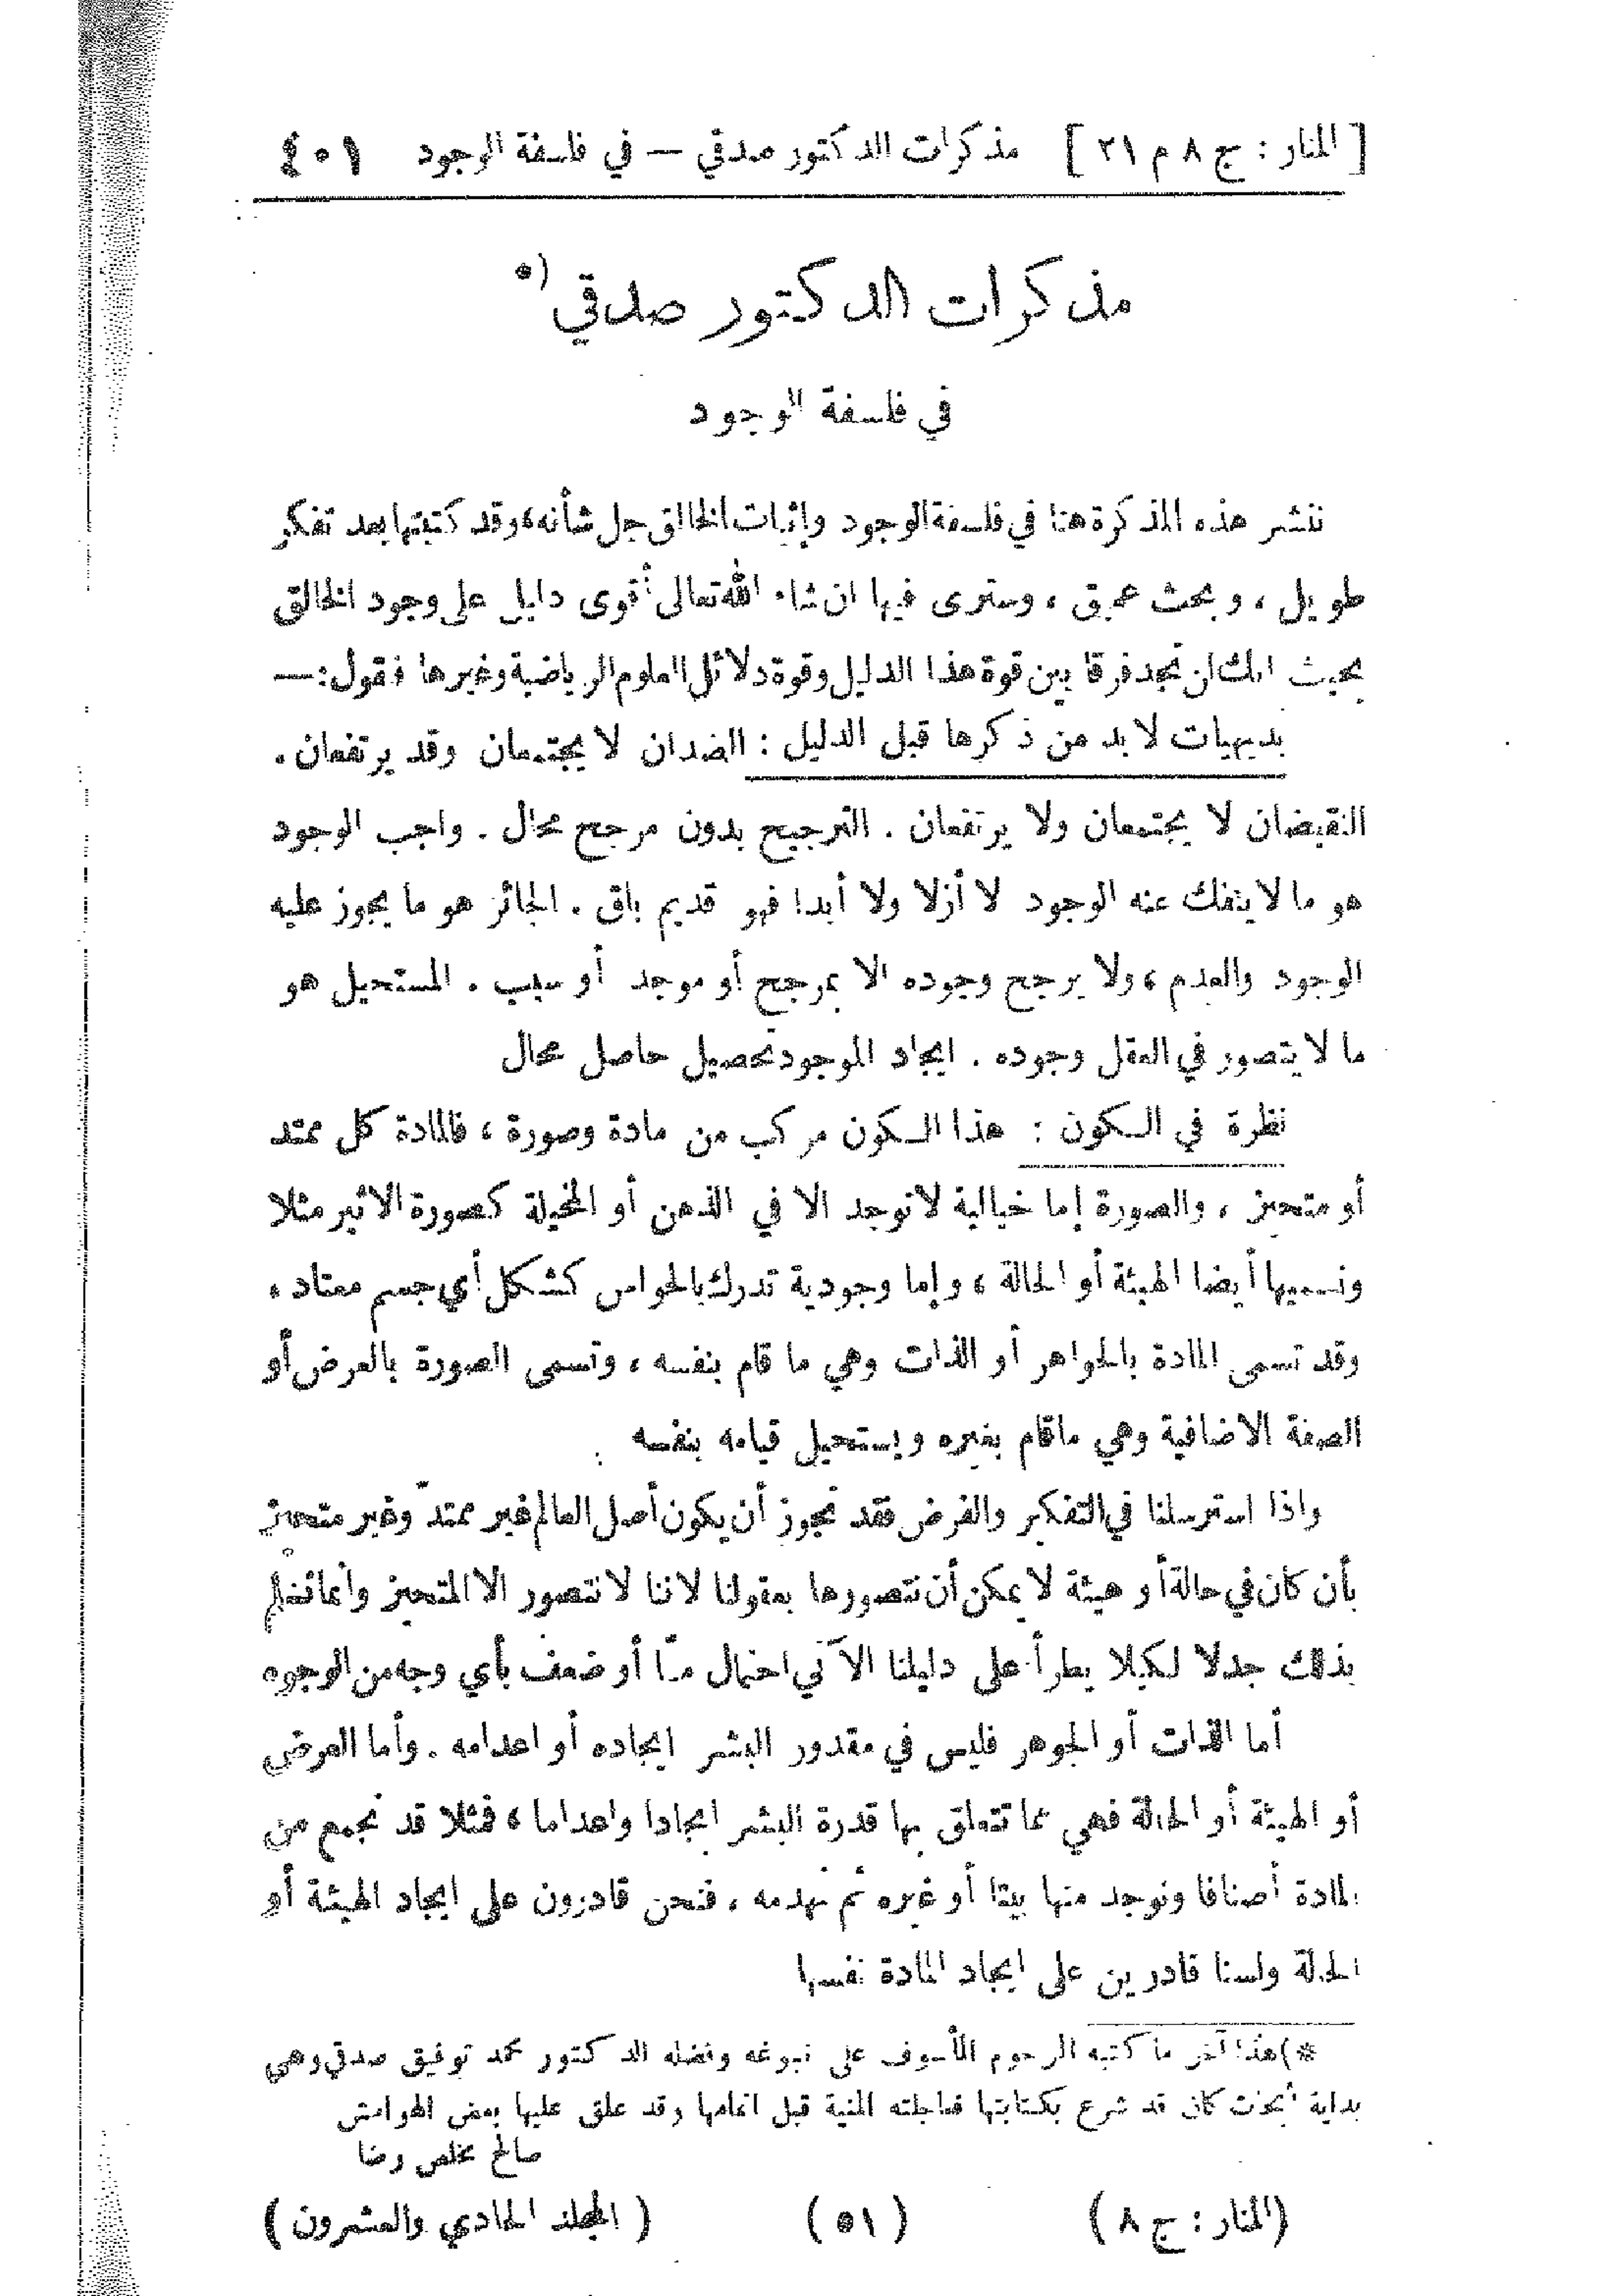 [ المنار : ج ٨ م ٢١ ] مذكرات الدكتور صدقي — في فلسفة الوجود ٤٠١
مذكرات الدكتور صدقي *)
في فلسفة الوجود
ننشر هذه المذكرة هنا في فلسفة الوجود وإثبات الخالق جل شأنه ، وقد كتبتها بعد تفكر
طويل ، وبحث عميق ، وسترى فيها ان شاء الله تعالى أقوى دليل على وجود الخالق
بحيث انك لن تجد فرقا بين قوة هذا الدليل وقوة دلائل العلوم الرياضية وغيرها فنقول : —
بديهيات لا بد من ذكرها قبل الدليل : الضدان لا يجتمعان وقد يرتفعان .
النقيضان لا يجتمعان ولا يرتفعان . الترجيح بدون مرجح محال . واجب الوجود
هو ما لا ينفك عنه الوجود لا أزلا ولا أبدا فهو قديم باق . الجائز هو ما يجوز عليه
الوجود والعدم ، ولا يرجح وجوده الا بمرجح أو موجد أو سبب . المستحيل هو
ما لا يتصور في العقل وجوده . ايجاد الموجود تحصيل حاصل محال
نظرة في الكون : هذا الكون مركب من مادة وصورة ، فالمادة كل ممتد
أو متحيز ، والصورة إما خيالية لا توجد الا في الذهن أو المخيلة كصورة الاثير مثلا
ونسميها أيضا الهيئة أو الحالة ، وإما وجودية تدرك بالحواس كشكل أي جسم معتاد ،
وقد تسمى المادة بالجواهر أو الذات وهي ما قام بنفسه ، وتسمى الصورة بالعرض أو
الصفة الاضافية وهي ما قام بغيره ويستحيل قيامه بنفسه
واذا استرسلنا في التفكير والفرض فقد نجوز أن يكون أصل العالم غير ممتدّ وغير متحيز
بأن كان في حالة أو هيئة لا يمكن أن نتصورها بعقولنا لاننا لا نتصور الا المتحيز وانما نسلم
بذلك جدلا لكيلا يطرأ على دليلنا الآتي احتمال مّا أو ضعف بأي وجه من الوجوه
أما الذات أو الجوهر فليس في مقدور البشر ايجاده أو اعدامه . وأما العرض
أو الهيئة أو الحالة فهي مما تتعلق بها قدرة البشر ايجادا واعداما ، فمثلا قد نجمع من
المادة أصنافا ونوجد منها بيتا أو غيره ثم نهدمه ، فنحن قادرون على ايجاد الهيئة أو
الحالة ولسنا قادرين على ايجاد المادة نفسها
*) هذا آخر ما كتبه المرحوم المأسوف على نبوغه وفضله الدكتور محمد توفيق صدقي وهي
بداية أبحاث كان قد شرع بكتابتها فعاجلته المنية قبل اتمامها وقد علق عليها بعض الهوامش
صالح مخلص رضا
(المنار : ج ٨ ) ( ٥١ ) ( المجلد الحادي والعشرون )